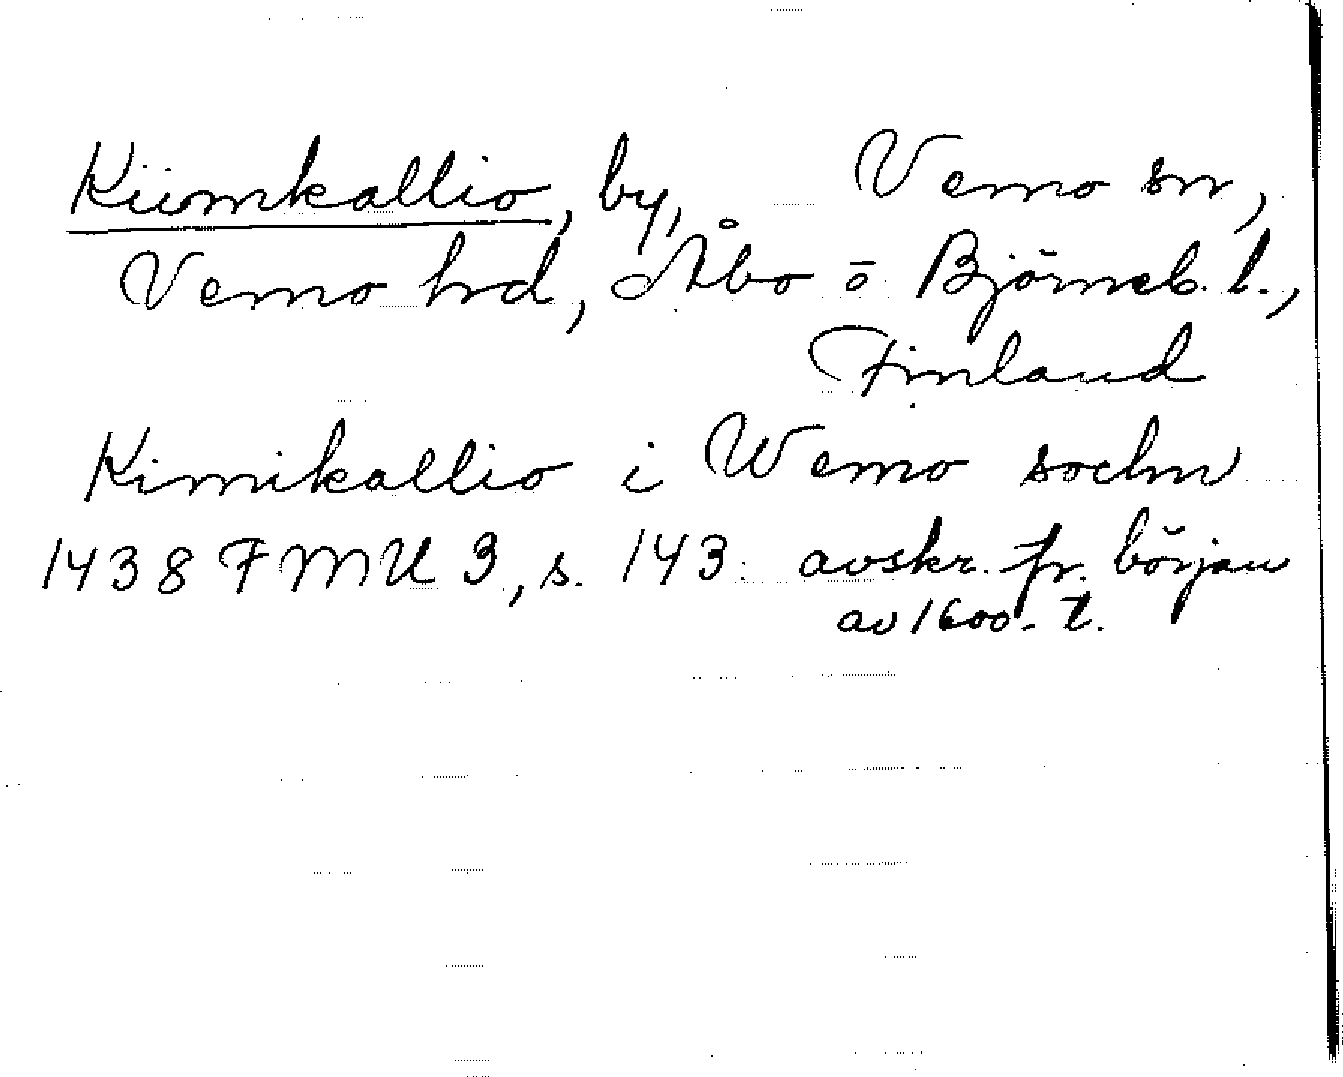 Kiimkallio, by, Vemo sn,
Vemo hrd, Åbo o Björneb. l.,
Finland
Kimikallio i Wemo sochn
1438 FMU 3, s. 143. avskr. fr. början
av 1600-t.